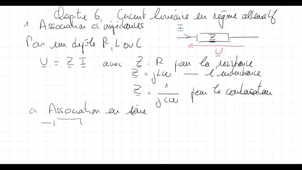 Chapitre 6, Circuit linéaire en régime alternatif
1 Association d'impédances
Pour un dipôle R, L ou C
I
Z
U
U = Z I avec Z = R pour la résistance
Z = jLω — l'inductance
Z = 1/jCω pour le condensateur
a Association en série